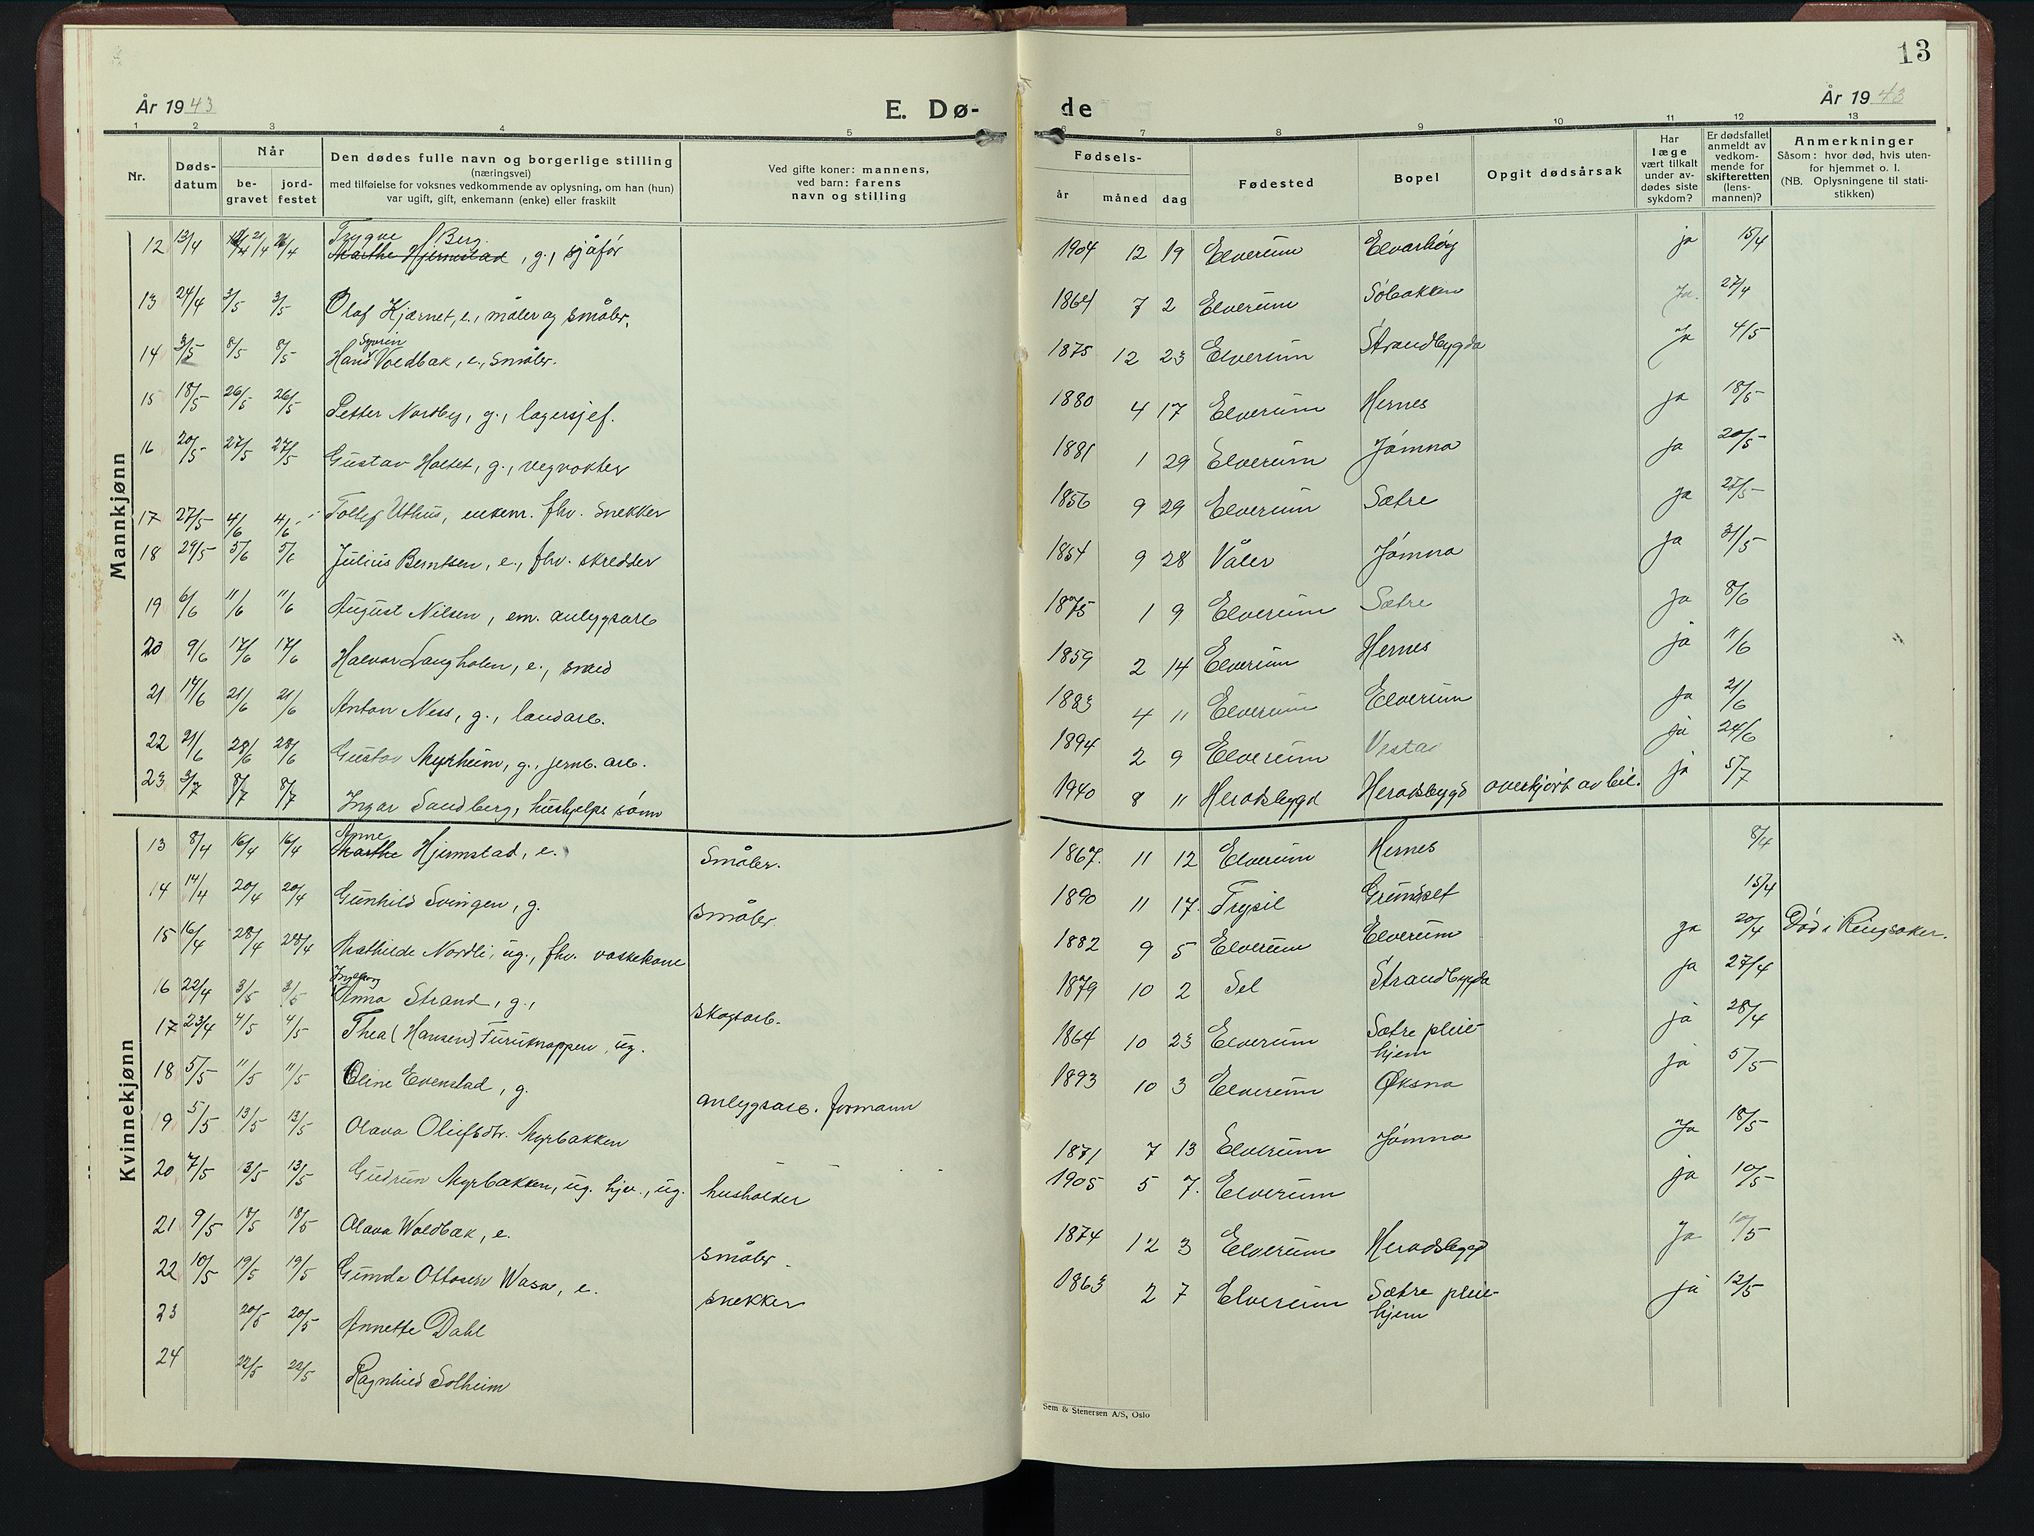 13
År 1943
E. Dø-
de
År 1943
1 2 3 4 5 6 7 8 9 10 11 12 13
Nr.
Døds-
datum
Når
be-
gravet
jord-
festet
Den dødes fulle navn og borgerlige stilling
(næringsvei)
med tilføielse for voksnes vedkommende av oplysning, om han (hun)
var ugift, gift, enkemann (enke) eller fraskilt
Ved gifte koner: mannens,
ved barn: farens
navn og stilling
Fødsels-
år måned dag
Fødested
Bopel
Opgit dødsårsak
Har
læge
vært tilkalt
under av-
dødes siste
sykdom?
Er dødsfallet
anmeldt av
vedkom-
mende for
skifteretten
(lens-
mannen)?
Anmerkninger
Såsom: hvor død, hvis uten-
for hjemmet o. l.
(NB. Oplysningene til stati-
stikken)
Mannkjønn
12 13/4 21/4 21/4 Trygve Berg, g., sjåfør 1904 12 19 Elverum Elvarhøy ja 15/4
13 24/4 3/5 3/5 Olaf Kjærnet, e., måler og småbr. 1864 7 2 Elverum Søbakken Ja. 27/4
14 3/5 8/5 8/5 Hans Syverin Voldbak, e., småbr. 1875 12 23 Elverum Strandbygda Ja 4/5
15 18/5 26/5 26/5 Petter Nordby, g., lagersjef. 1880 4 17 Elverum Hernes ja 18/5
16 20/5 27/5 27/5 Gustav Holtet, g., vegvokter 1881 1 29 Elverum Jømna ja 20/5
17 27/5 4/6 4/6 Tollef Uthus, enkem. fhv. snekker 1856 9 29 Elverum Sætre ja 27/5
18 29/5 5/6 5/6 Julius Berntsen, e., fhv. skredder 1854 9 28 Våler Jømna ja 31/5
19 6/6 11/6 11/6 August Nilsen, em. anlegsarb 1875 1 9 Elverum Sætre ja 8/6
20 9/6 17/6 17/6 Halvor Langholen, e., smed 1859 2 14 Elverum Hernes ja 11/6
21 14/6 21/6 21/6 Anton Ness, g., landarb. 1883 4 11 Elverum Elverum ja 21/6
22 21/6 28/6 28/6 Gustav Myrheim, g., jernb. arb. 1894 2 9 Elverum Vestad ja 24/6
23 3/7 8/7 8/7 Ingar Sandberg, hushjelps sønn 1940 8 11 Heradsbygd Heradsbygd overkjørt av bil. ja 5/7
Kvinnekjønn
13 8/4 16/4 16/4 Anne Hjermstad, e. Småbr. 1867. 11 12 Elverum Hernes 8/4
14 14/4 20/4 20/4 Gunhild Svingen, g. småbr. 1890 11 17. Trysil Grundset 15/4
15 16/4 28/4 28/4 Mathilde Nordli, ug., fhv. vaskekone 1882 9 5 Elverum Elverum ja 20/4 Død i Ringsaker.
16 22/4 3/5 3/5 Ingeborg Anna Strand, g., skogsarb. 1879 10 2 Sel Strandbygda ja 27/4
17 23/4 4/5 4/5 Thea (Hansen) Furuknappen, ug. 1864 10 23 Elverum Sætre pleie-
hjem ja 28/4
18 5/5 11/5 11/5 Oline Evenstad, g. anlegsarb. formann 1893 10 3 Elverum Øksna ja 5/5
19 5/5 13/5 13/5 Olava Olufsdtr. Myrbakken 1871 7 13 Elverum Jømna Ja 18/5
20 7/5 13/5 13/5 Gudrun Myrbakken, ug. hjv., ug. husholder 1905 5 7. Elverum ja 10/5
21 9/5 18/5 18/5 Olava Woldbak, e. småbr. 1874 12 3 Elverum Heradsbygd Ja 10/5
22 10/5 19/5 19/5 Gunda Ottosen Wasa, e. snekker 1863 2 7 Elverum Sætre pleie-
hjem ja 12/5
23 20/5 20/5 Annette Dahl
24 22/5 22/5 Ragnhild Solheim
Sem & Stenersen A/S, Oslo